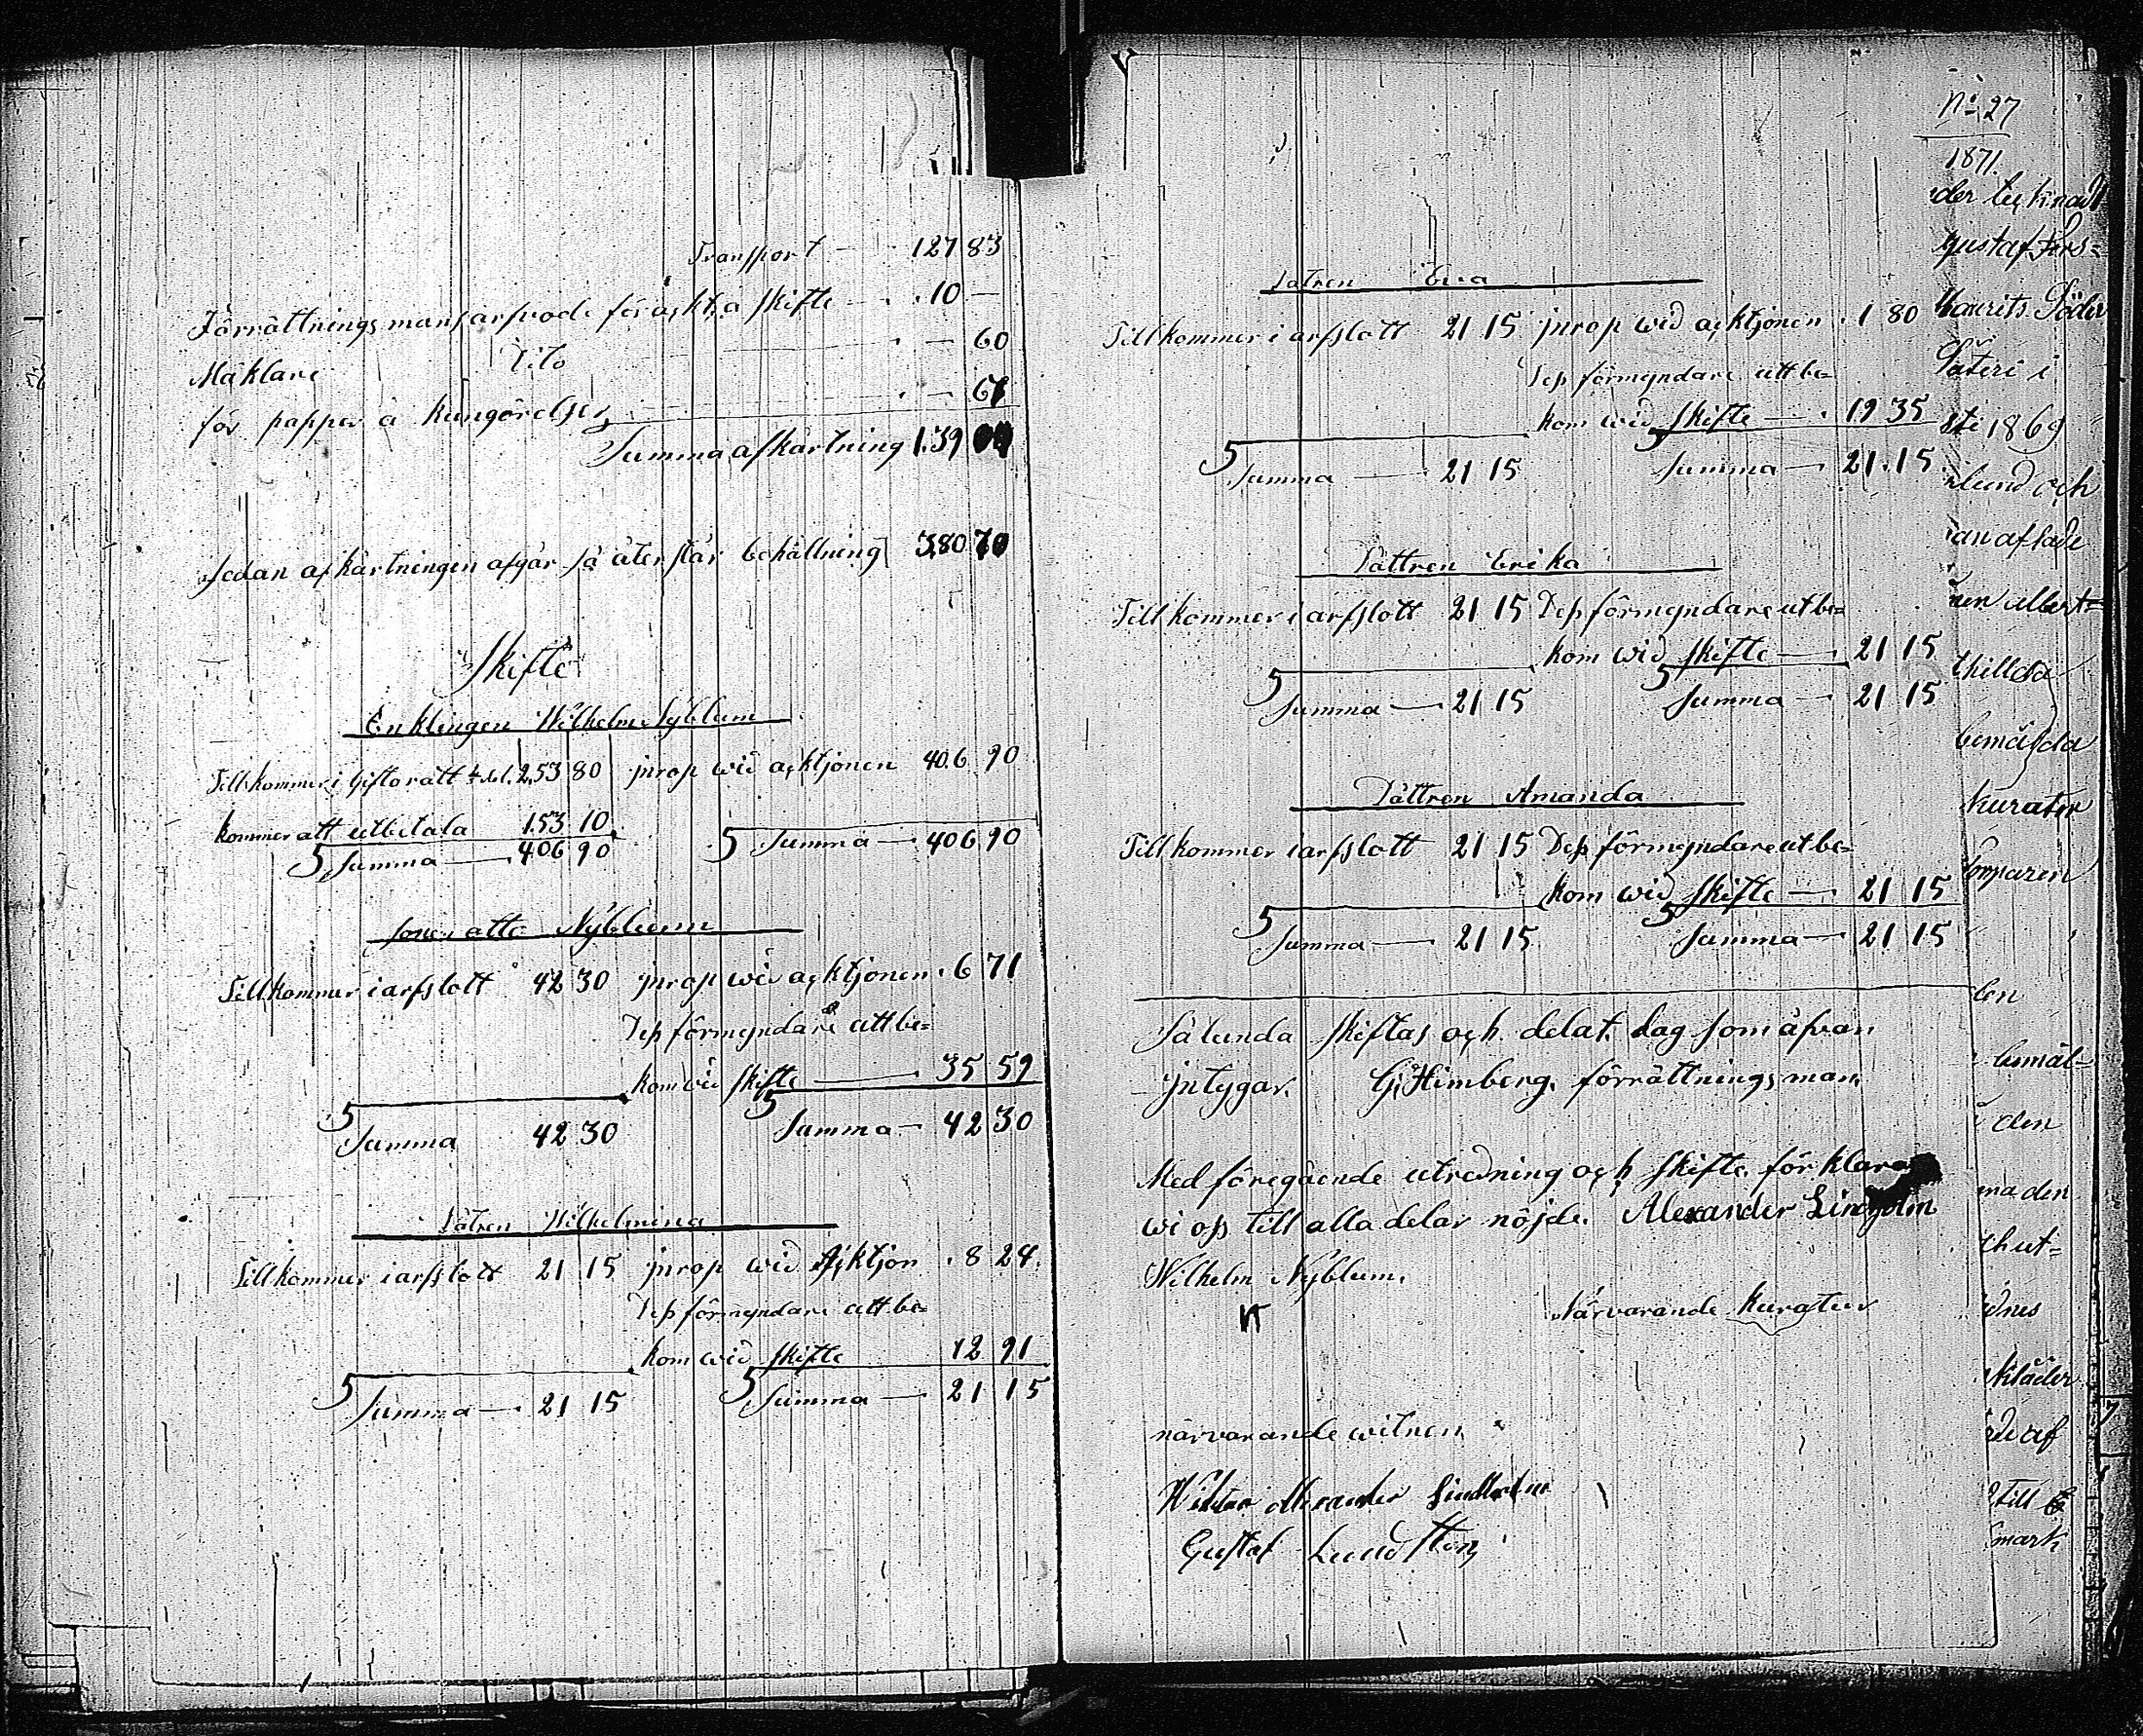 Transport — 127 83
Förrättningsmans arfvode för äfskta skifte — 10 —
Mäklare Dito — 60
för papper a kungörelser — 61
Summa afkartning 139
sedan afkärtningen afgår så återstår behållning 380 70
Skifte
Enklingen Wilhelm Nyblum
Tillkommer i Giftorätt ½ del. 253 80 jnrop wid acktjonen 406 90
kommer att utbetala 153 10
Summa — 406 90 Summa — 406 90
sonen Nyblum
Tillkommer i arfslott 42 30 jnrop wid acktjonen . 6 71
Dess förmyndare utt be=
kom wid skifte — 35 59
Summa 42 30 Summa — 42 30
Datren Wilhelmina
Tillkommer i arfslott 21 15 jnrop wid acktjon . 8 24.
Dess förmyndare utt be=
kom wid skifte 12 91
Summa — 21 15 Summa — 21 15
Datren Eva
Tillkommer i arfslott 21 15 jnrop wid acktjonen . 1 80
Dess förmyndare utt be=
kom wid skifte — 19 35
Summa — 21 15 Summa — 21.15
Dättren Erika
Tillkommer i arfslott 21 15 Dess förmyndare ut be=
kom wid skifte — 21 15
Summa — 21 15 Summa — 21 15
Dättren Amanda
Tillkommer i arfslott 21 15 Dess förmyndare ut be=
kom wid skifte — 21 15
Summa — 21 15 Summa — 21 15
Sålunda skiftas och delat. dag som åfvan
jntygar. G. Himberg. förrättningsman.
Med föregående utredning och skifte förklara
wi oss till alla delar nöjde. Alexander Lindholm
Wilhelm Nyblum.
närvarande kurator
närvarande witnen
Alexander Lindholm
Gustaf
No 27
1871.
der tecknad
Gustaf
Maurits Söder
Säteri i
sti 1869
lund och
an aflade
nen Albert=
thillda
bemälda
kurator
komparen
len
bemäl=
i den
ma den
chut=
dnes
kläder
de af
till
mark